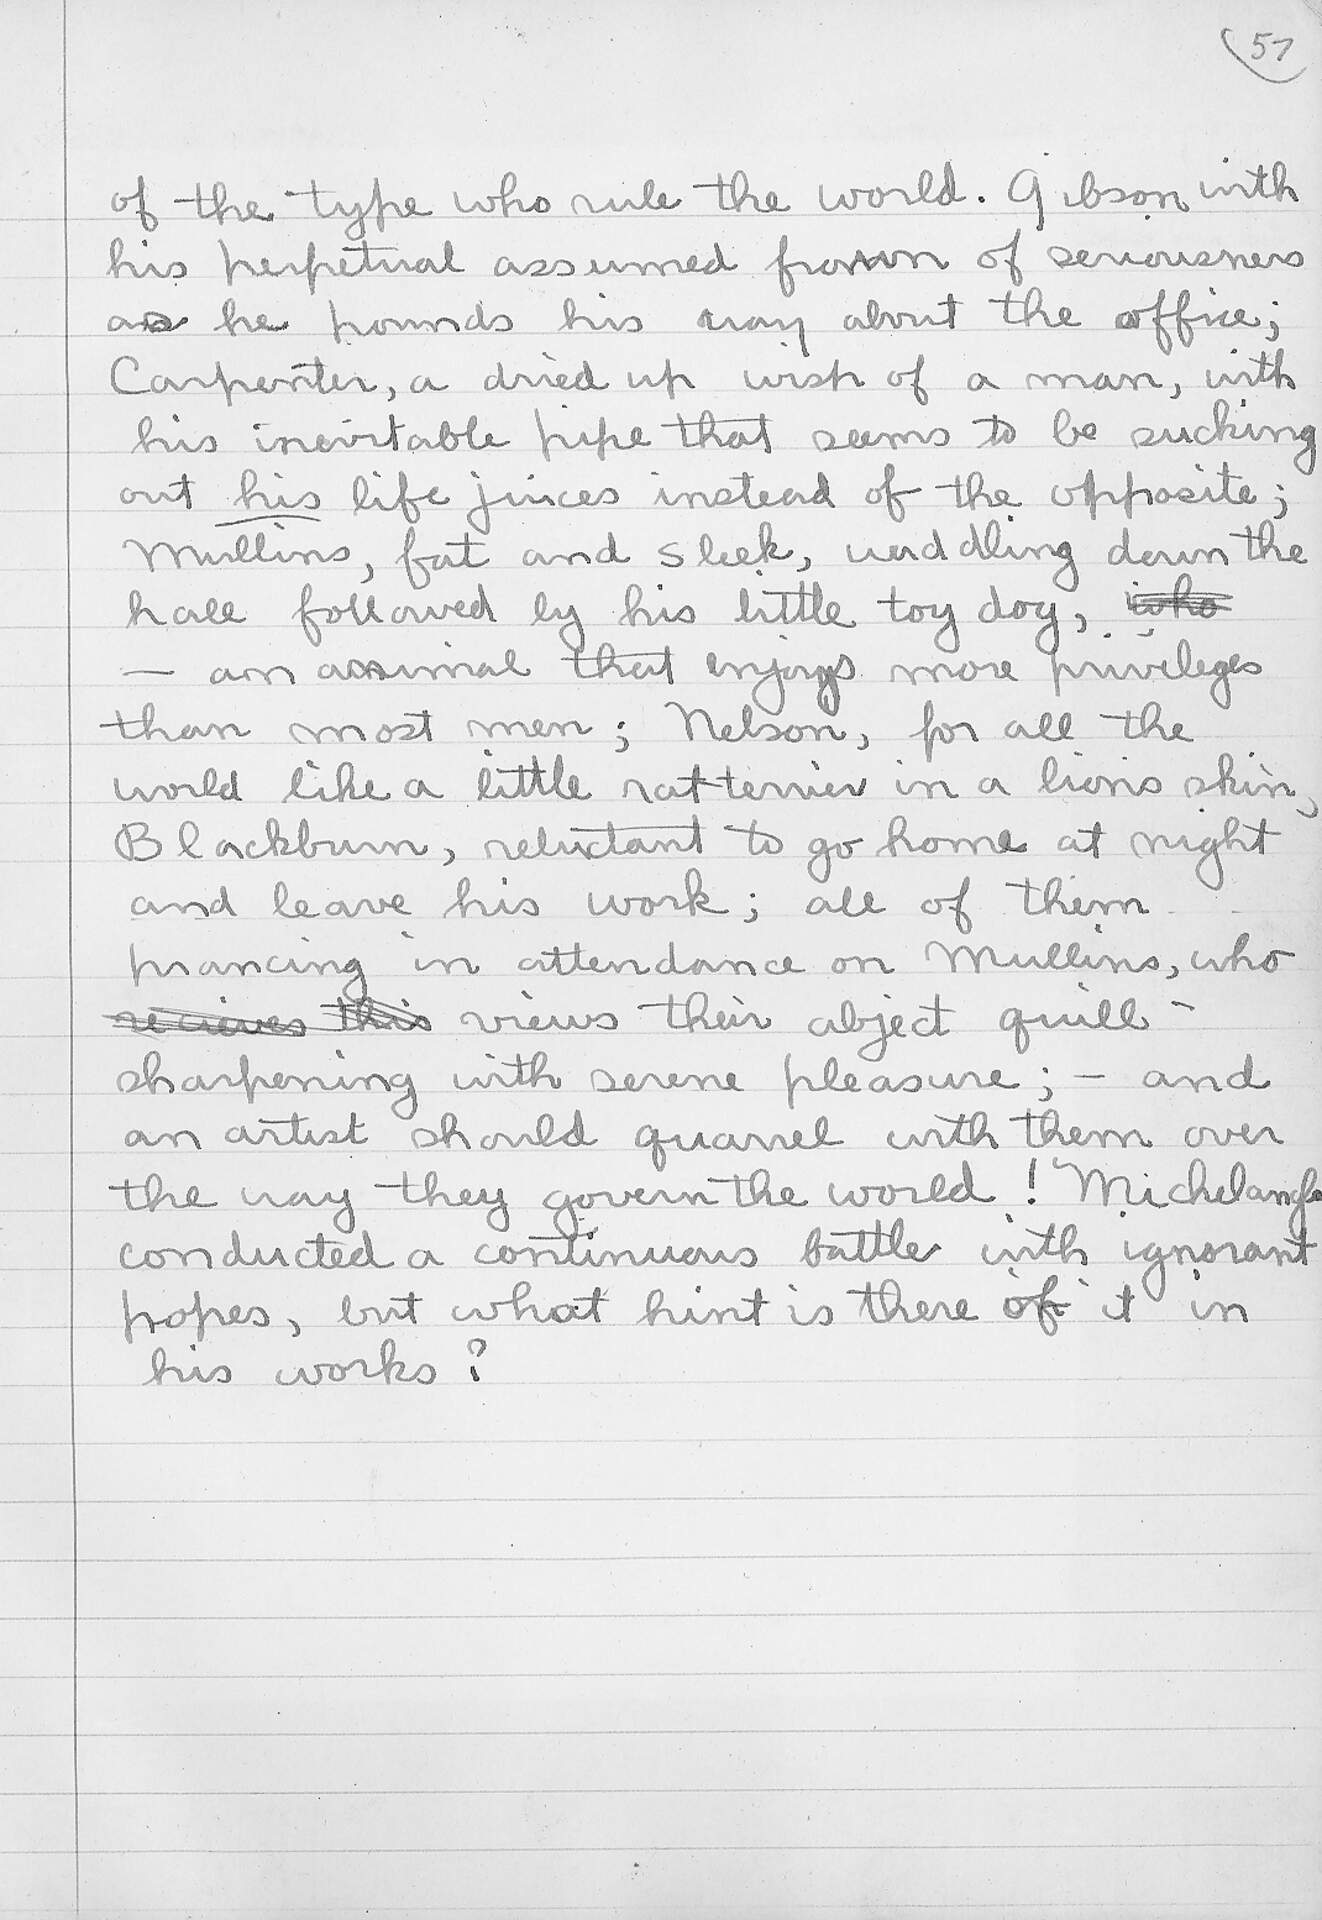 57
of the type who rule the world. Gibson with
his perpetual assumed frown of seriousness
as he pounds his way about the office;
Carpenter, a dried up wisp of a man, with
his inevitable pipe that seems to be sucking
out his life juices instead of the opposite;
Mullins, fat and sleek, waddling down the
hall followed by his little toy dog, who
— an animal that enjoys more privileges
than most men; Nelson, for all the
world like a little rat terrier in a lion's skin,
Blackburn, reluctant to go home at night
and leave his work; all of them
prancing in attendance on Mullins, who
recieves this views their abject quill -
sharpening with serene pleasure; — and
an artist should quarrel with them over
the way they govern the world! Michelanglo
conducted a continuous battle with ignorant
popes, but what hint is there of it in
his works?